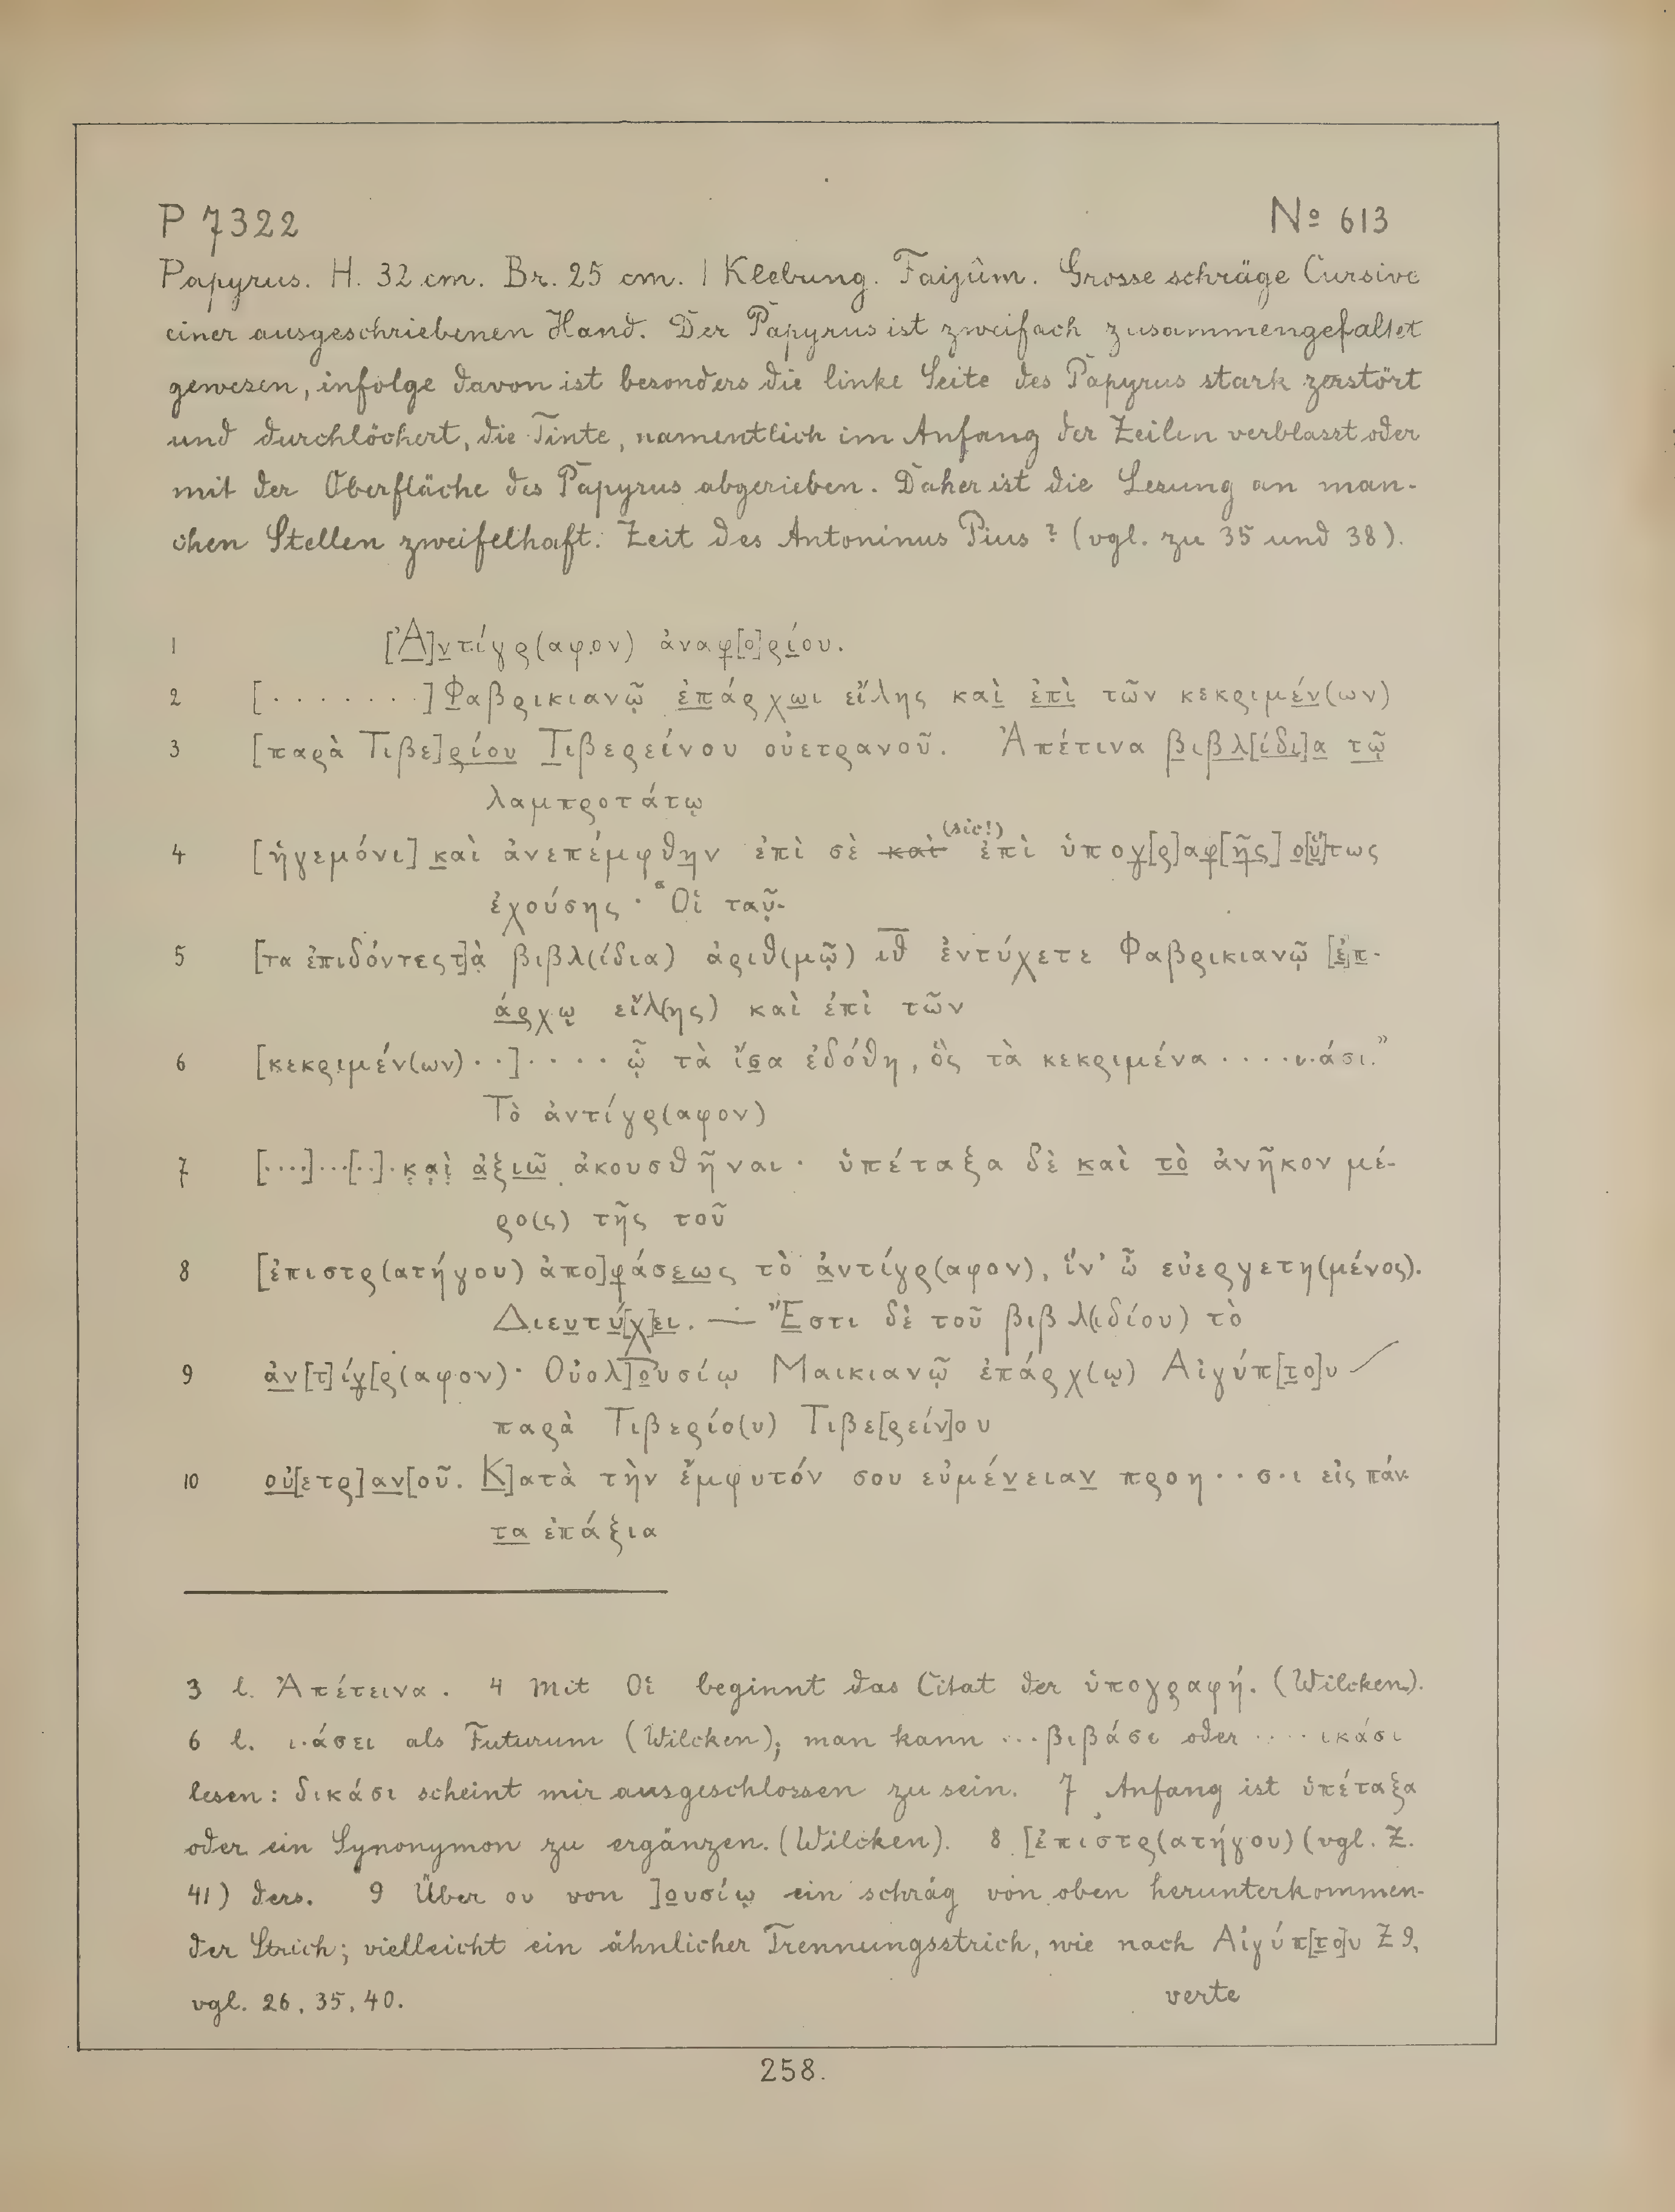 P 7322 Nº 613
Papyrus. H. 32 cm. Br. 25 cm. 1 Klebung. Faijûm. Grosse schräge Cursive
einer ausgeschriebenen Hand. Der Papyrus ist zweifach zusammengefaltet
gewesen, infolge davon ist besonders die linke Seite des Papyrus stark zerstört
und durchlöchert, die Tinte, namentlich im Anfang der Zeilen verblasst oder
mit der Oberfläche des Papyrus abgerieben. Daher ist die Lesung an man-
chen Stellen zweifelhaft. Zeit des Antoninus Pius? (vgl. zu 35 und 38).
1 [Ἀ]ντίγρ(αφον) ἀναφ[ο]ρίου.
2 [· · · · · · · ·] Φαβρικιανῷ ἐπάρχωι εἴλης καὶ ἐπὶ τῶν κεκριμέν(ων)
3 [παρὰ Τιβε]ρίου Τιβερείνου οὐετρανοῦ. Ἀπέτινα βιβλ[ίδι]α τῷ
λαμπροτάτῳ
(sic!)
4 [ἡγεμόνι] καὶ ἀνεπέμφθην ἐπὶ σὲ καὶ ἐπὶ ὑπογ[ρ]αφ[ῆς] ο[ὕ]τως
ἐχούσης · “Οἱ ταῦ-
5 [τα ἐπιδόντες τ]ὰ βιβλ(ίδια) ἀριθ(μῷ) ιθ ἐντύχετε Φαβρικιανῷ [ἐ]π-
άρχῳ εἴλ(ης) καὶ ἐπὶ τῶν
6 [κεκριμέν(ων) · ·] · · · · ᾧ τὰ ἴσα ἐδόθη, ὃς τὰ κεκριμένα · · · · ι·άσι.”
Τὸ ἀντίγρ(αφον)
7 [· · · ·] · · · [· ·] · καὶ ἀξιῶ ἀκουσθῆναι · ὑπέταξα δὲ καὶ τὸ ἀνῆκον μέ-
ρο(ς) τῆς τοῦ
8 [ἐπιστρ(ατήγου) ἀπο]φάσεως τὸ ἀντίγρ(αφον), ἵν’ ὦ εὐεργετη(μένος).
Διευτύ[χ]ει. —·— Ἔστι δὲ τοῦ βιβλ(ιδίου) τὸ
9 ἀν[τ]ίγ[ρ(αφον) · Οὐολ]ουσίῳ Μαικιανῷ ἐπάρχ(ῳ) Αἰγύπ[το]υ ⁄
παρὰ Τιβερίο(υ) Τιβε[ρείν]ου
10 οὐ[ετρ]αν[οῦ. Κ]ατὰ τὴν ἔμφυτόν σου εὐμένειαν προη · · σ·ι εἰς πάν-
τα ἐπάξια
3 l. Ἀπέτεινα. 4 Mit Οἱ beginnt das Citat der ὑπογραφή. (Wilcken).
6 l. ι·άσει als Futurum (Wilcken); man kann · · · βιβάσι oder · · · · ικάσι
lesen: δικάσι scheint mir ausgeschlossen zu sein. 7 Anfang ist ὑπέταξα
oder ein Synonymon zu ergänzen. (Wilcken). 8 [ἐπιστρ(ατήγου) (vgl. Z.
41) ders. 9 Über ου von ]ουσίῳ ein schräg von oben herunterkommen-
der Strich; vielleicht ein ähnlicher Trennungsstrich, wie nach Αἰγύπ[το]υ Z 9,
vgl. 26, 35, 40. verte
258.